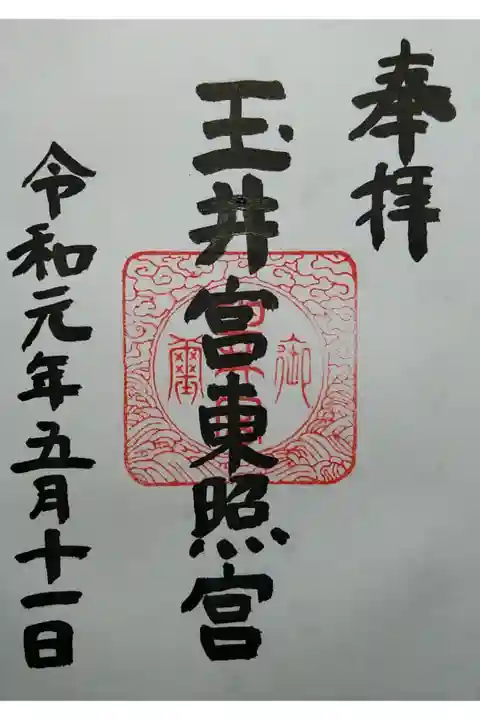 奉拝
玉井宮東照宮
令和元年五月十一日
御
璽